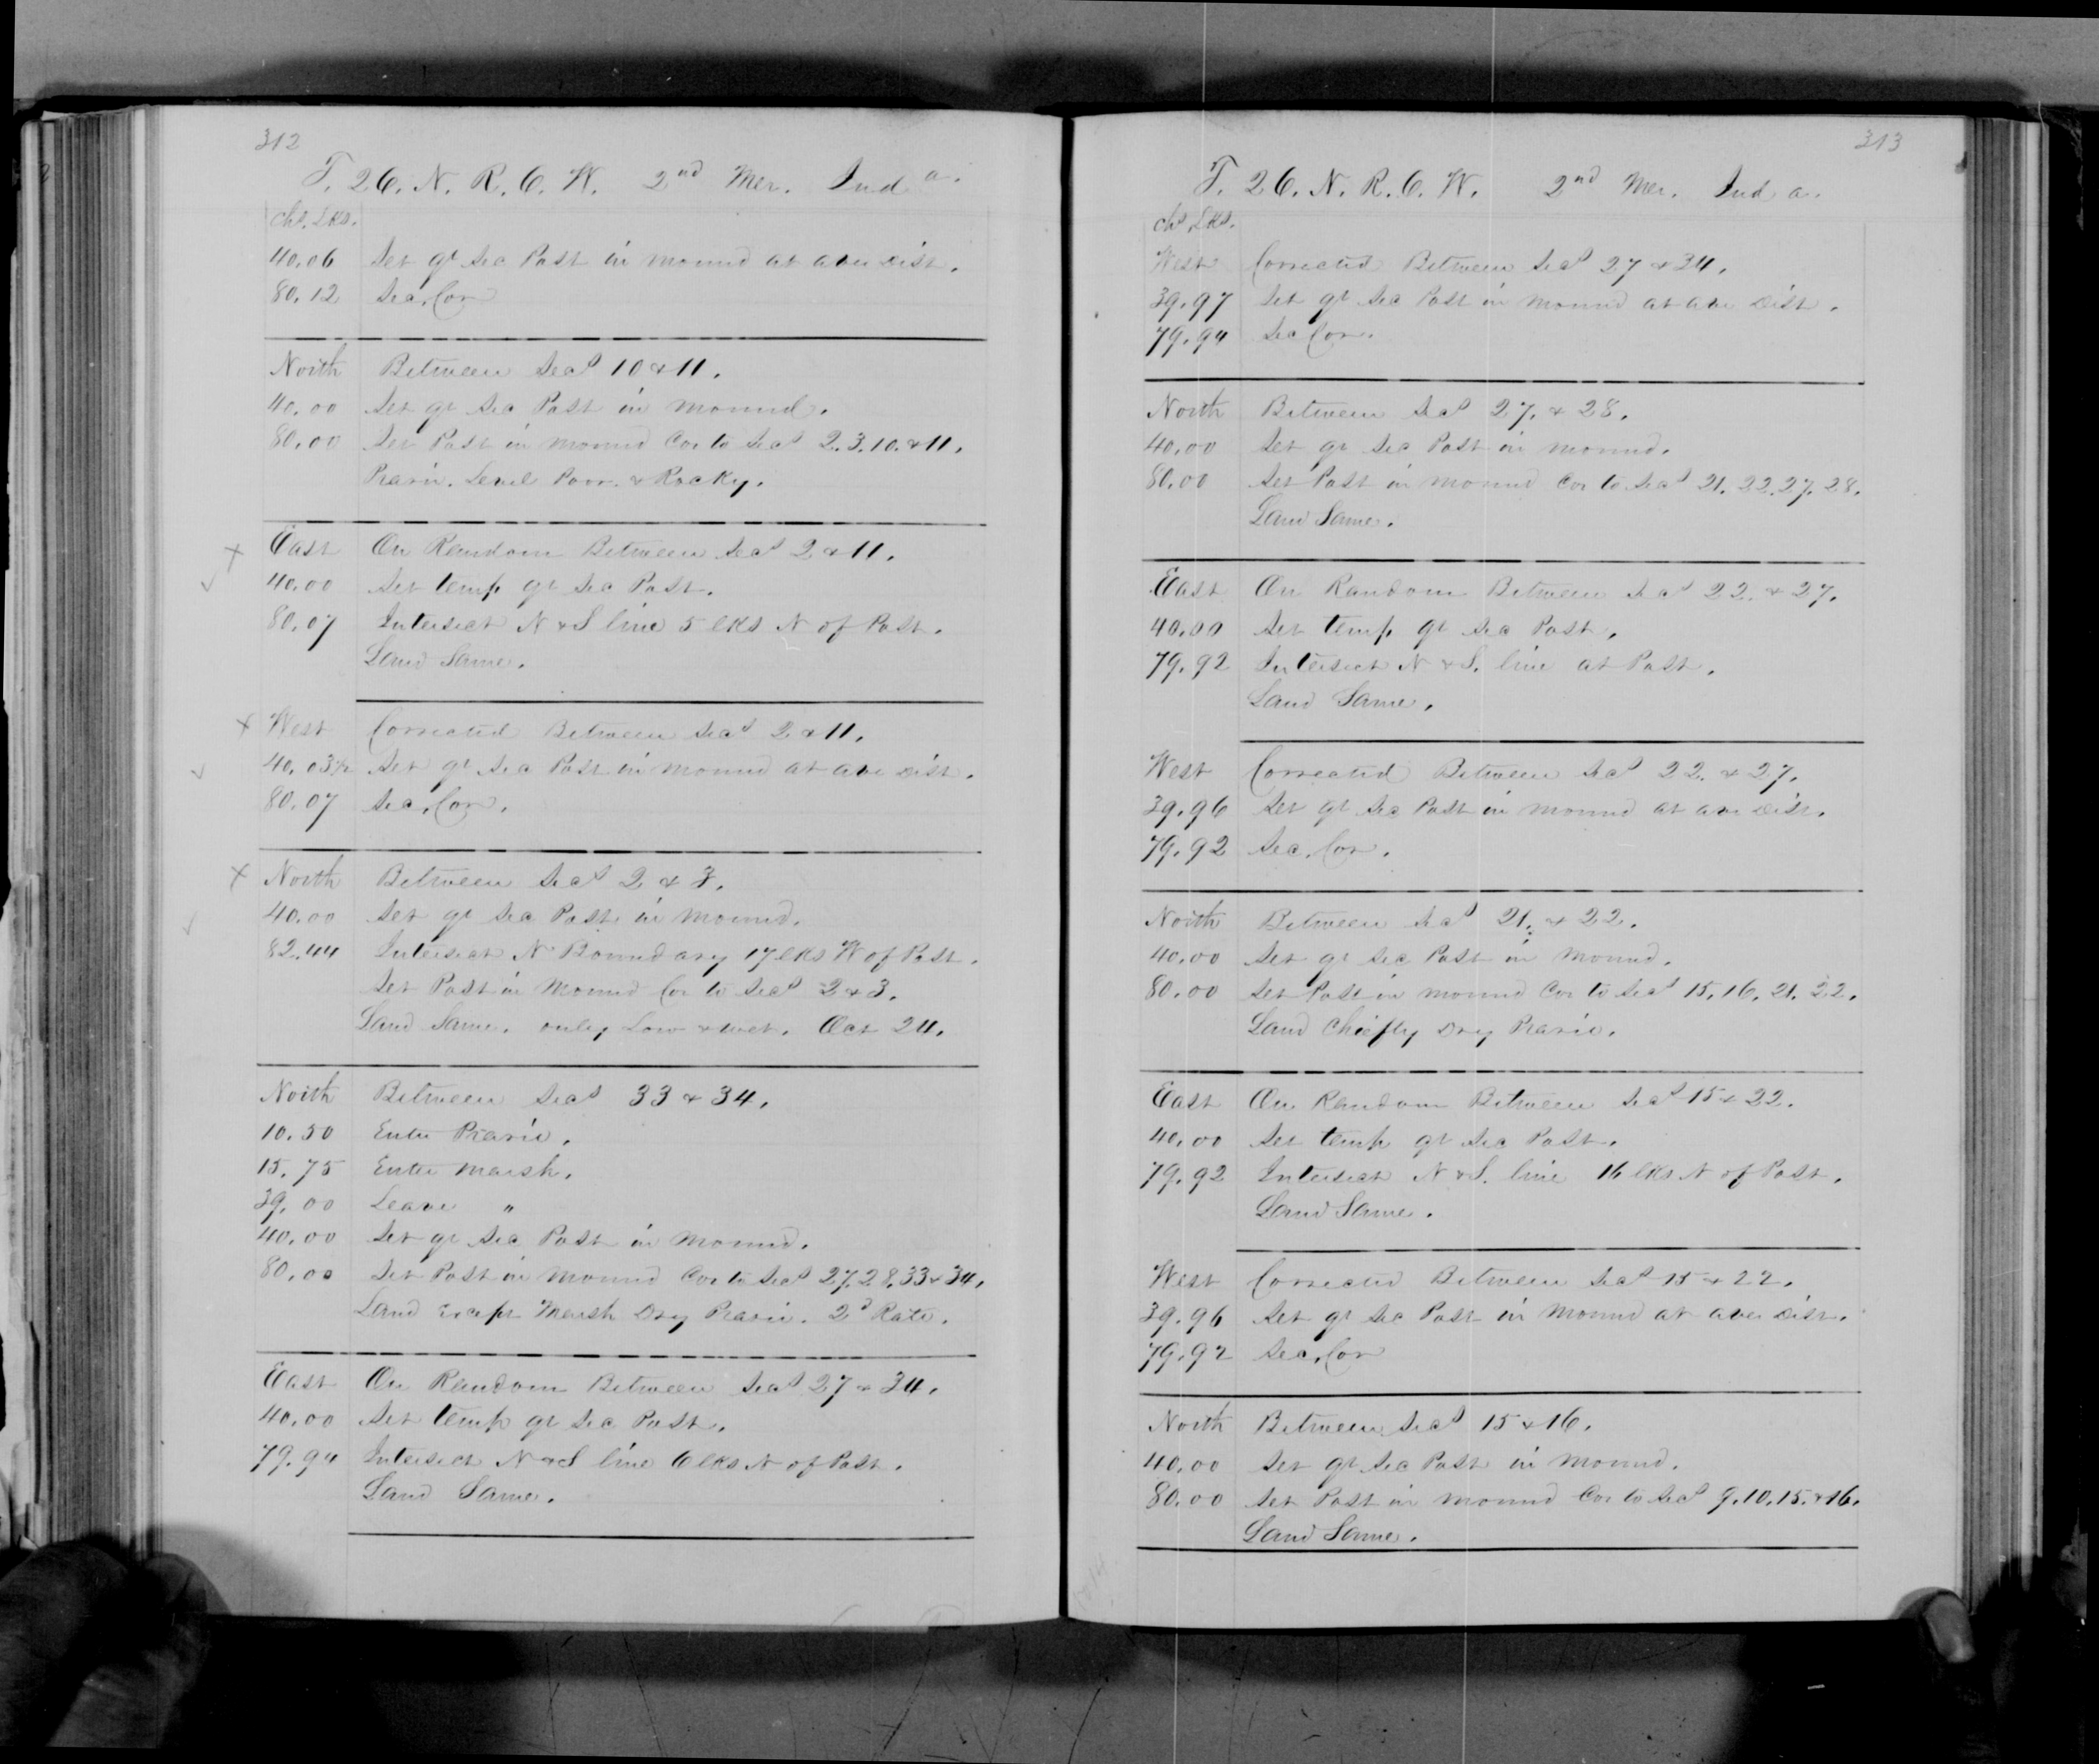 312
T. 26. N. R. 6. W. 2nd Mer. Inda.
Chs. Lks.
40.06 Set qr Sec Post in Mound at aver Dist.
80.12 Sec. Cor
North Between Secs 10 & 11.
40.00 Set qr Sec Post in Mound.
80.00 Set Post in Mound Cor to Secs 2. 3. 10. & 11.
Prarie. Level Poor. & Rocky.
East On Random Between Secs 2 & 11.
40.00 Set temp qr Sec Post.
80.07 Intersect N & S line 5 lks N of Post.
Land Same.
West Corrected Between Secs 2 & 11.
40.03½ Set qr Sec Post in Mound at ave Dist.
80.07 Sec. Cor.
North Between Secs 2 & 3.
40.00 Set qr Sec Post in Mound.
82.44 Intersect N Boundary 17 lks W of Post.
Set Post in Mound Cor to Secs 2 & 3.
Land Same. only Low & wet. Oct 24.
North Between Secs 33 & 34.
10.50 Enter Prarie.
15.75 Enter Marsh.
39.00 Leave "
40.00 Set qr Sec Post in Mound.
80.00 Set Post in Mound Cor to Secs 27. 28. 33 & 34.
Land Except Marsh Dry Prarie. 2d Rate.
East On Random Between Secs 27 & 34.
40.00 Set temp qr Sec Post.
79.94 Intersect N & S line 6 lks N of Post.
Land Same.
313
T. 26. N. R. 6. W. 2nd Mer. Inda.
Chs Lks.
West Corrected Between Secs 27 & 34.
39.97 Set qr Sec Post in Mound at ave Dist.
79.94 Sec Cor.
North Between Secs 27. & 28.
40.00 Set qr Sec Post in Mound.
80.00 Set Post in Mound Cor to Secs 21. 22. 27. 28.
Land Same.
East On Random Between Secs 22. & 27.
40.00 Set temp qr Sec Post.
79.92 Intersect N & S. line at Post.
Land Same.
West Corrected Between Secs 22. & 27.
39.96 Set qr Sec Post in Mound at ave Dist.
79.92 Sec. Cor.
North Between Secs 21. & 22.
40.00 Set qr Sec Post in Mound.
80.00 Set Post in Mound Cor to Secs 15. 16. 21. 22.
Land Chiefly Dry Prarie.
East On Random Between Secs 15 & 22.
40.00 Set temp qr Sec Post.
79.92 Intersect N & S. line 16 lks N of Post.
Land Same.
West Corrected Between Secs 15 & 22.
39.96 Set qr Sec Post in Mound at aver Dist.
79.92 Sec. Cor
North Between Secs 15 & 16.
40.00 Set qr Sec Post in Mound.
80.00 Set Post in Mound Cor to Secs 9. 10. 15. & 16.
Land Same.